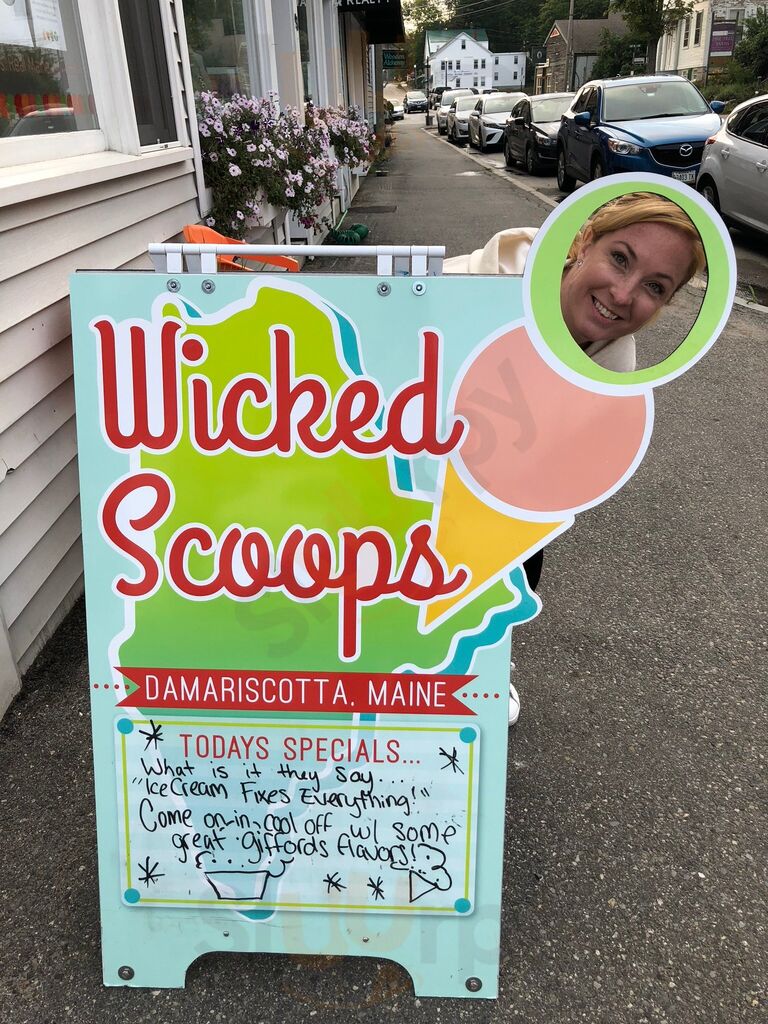 & REALTY
Wicked
Scoops
DAMARISCOTTA, MAINE
TODAYS SPECIALS...
What is it they say....
"Ice Cream Fixes Everything!"
Come on-in, cool off w/ some
great Giffords flavors!
Sluurpy
Sluurpy